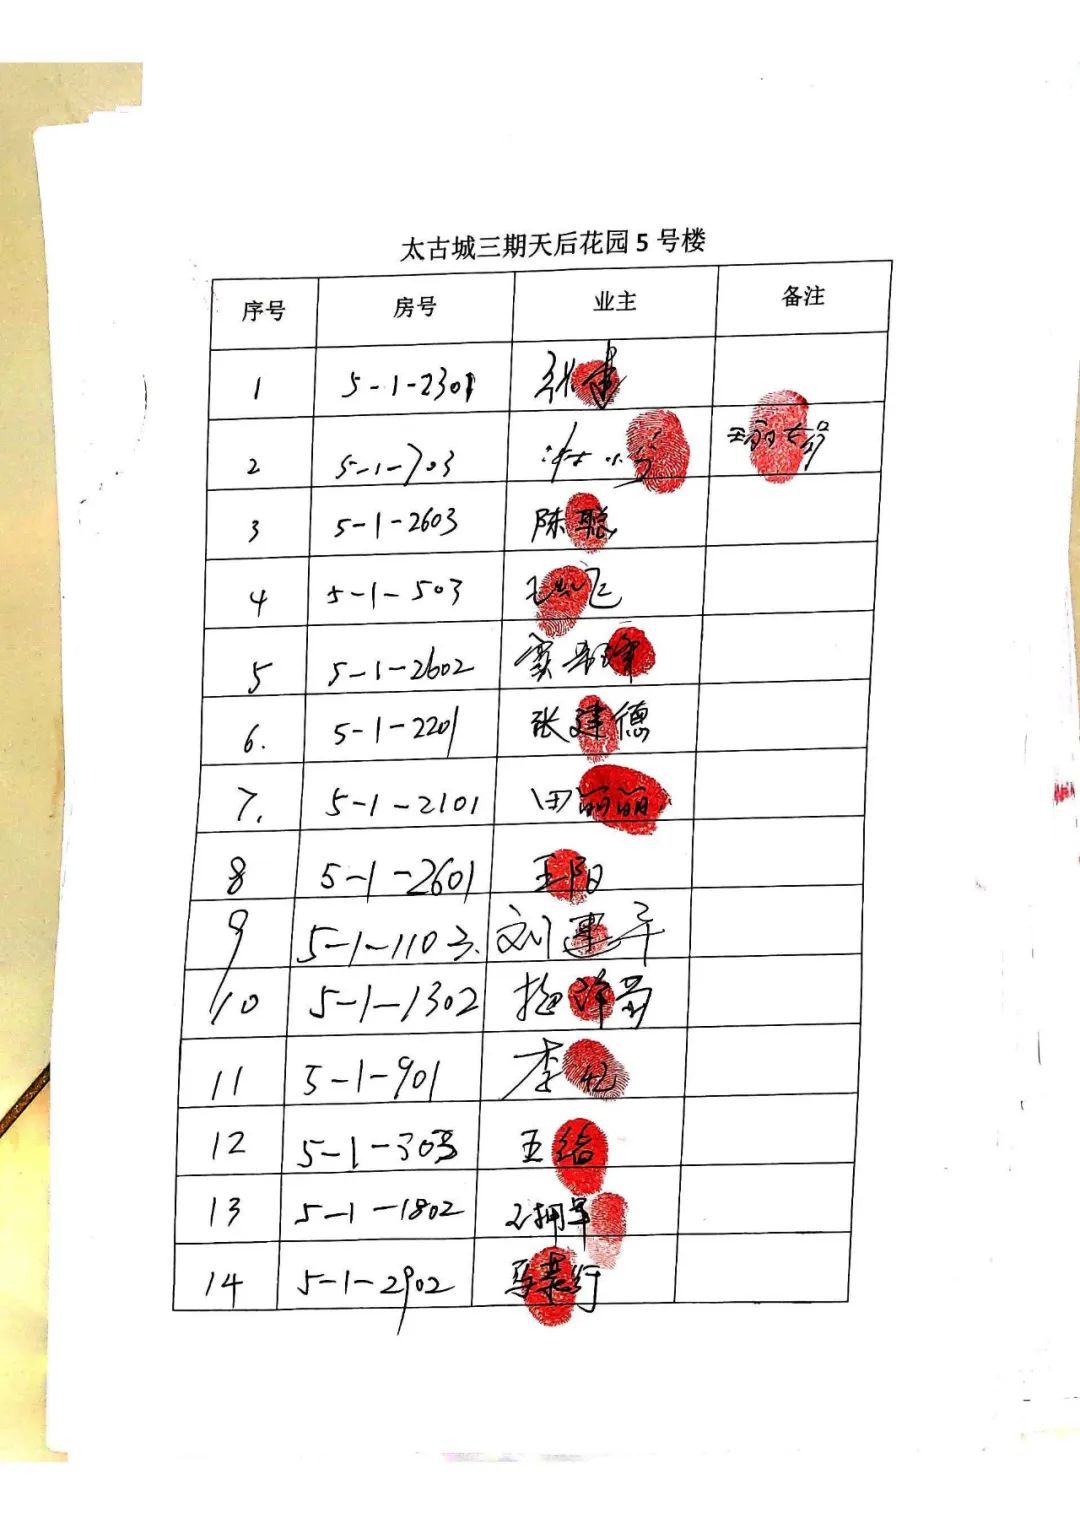 太古城三期天后花园5号楼
序号 房号 业主 备注
1 5-1-2301 张
2 5-1-703
3 5-1-2603 陈聪
4 5-1-503 飞
5 5-1-2602 窦
6. 5-1-2201 张建德
7. 5-1-2101 田丽丽
8 5-1-2601 王阳
9 5-1-1103. 刘建平
10 5-1-1302
11 5-1-901 李
12 5-1-303 王
13 5-1-1802 拥军
14 5-1-2902 马